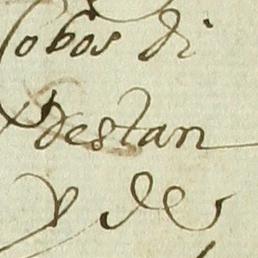 Cobos di
destan
y de